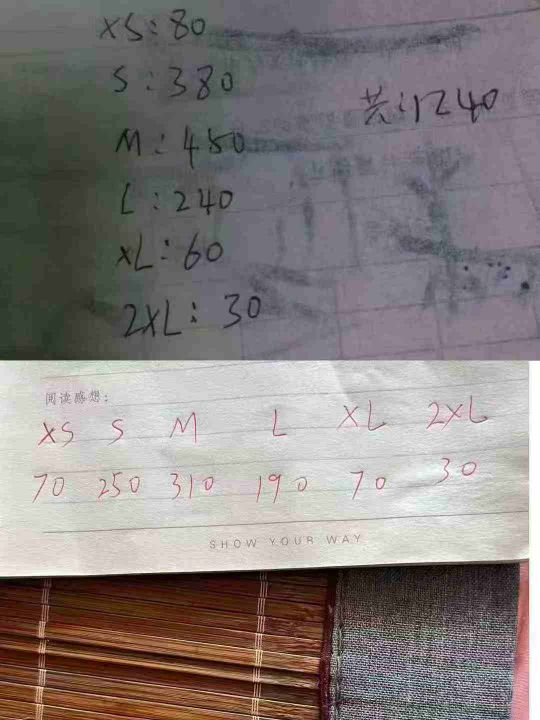 XS:80
S:380
共:1240
M:450
L:240
XL:60
2XL:30
阅读感想:
XS S M L XL 2XL
70 250 310 190 70 30
SHOW YOUR WAY